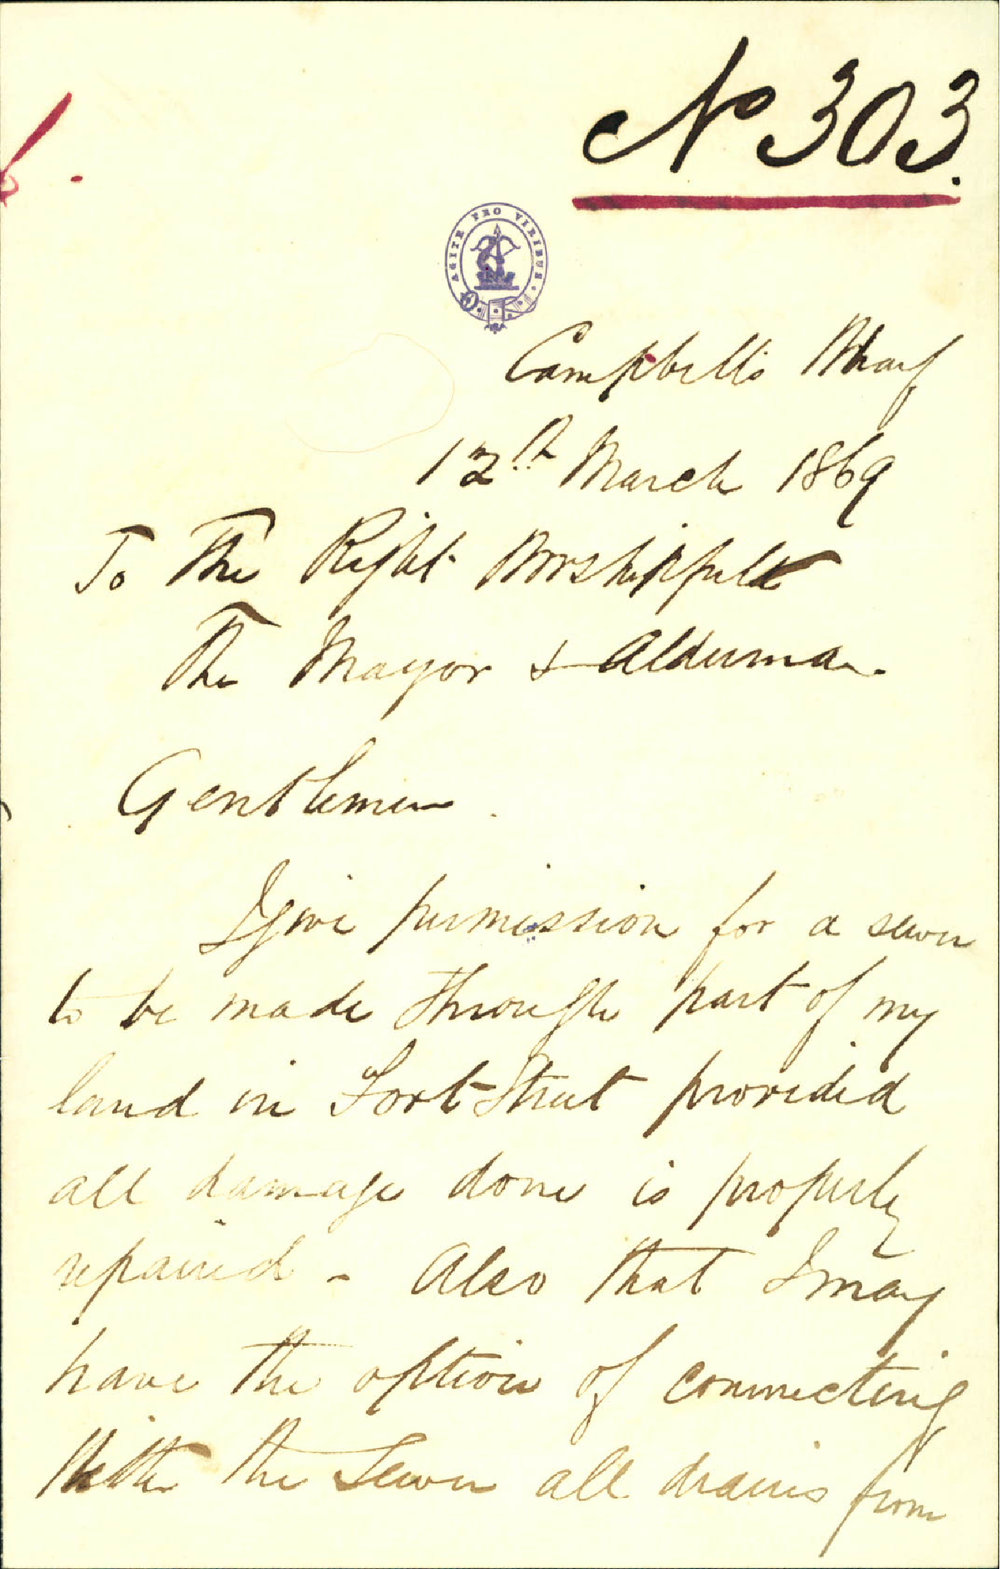 No 303.
AGITE PRO VIRIBUS
Campbell's Wharf
12th March 1869
To The Right Worshippfull
The Mayor & Alderman
Gentlemen.
I give permission for a sewer
to be made through part of my
land in Fort Street provided
all damage done is properly
repaired - Also that I may
have the option of connecting
With the Sewer all drains from